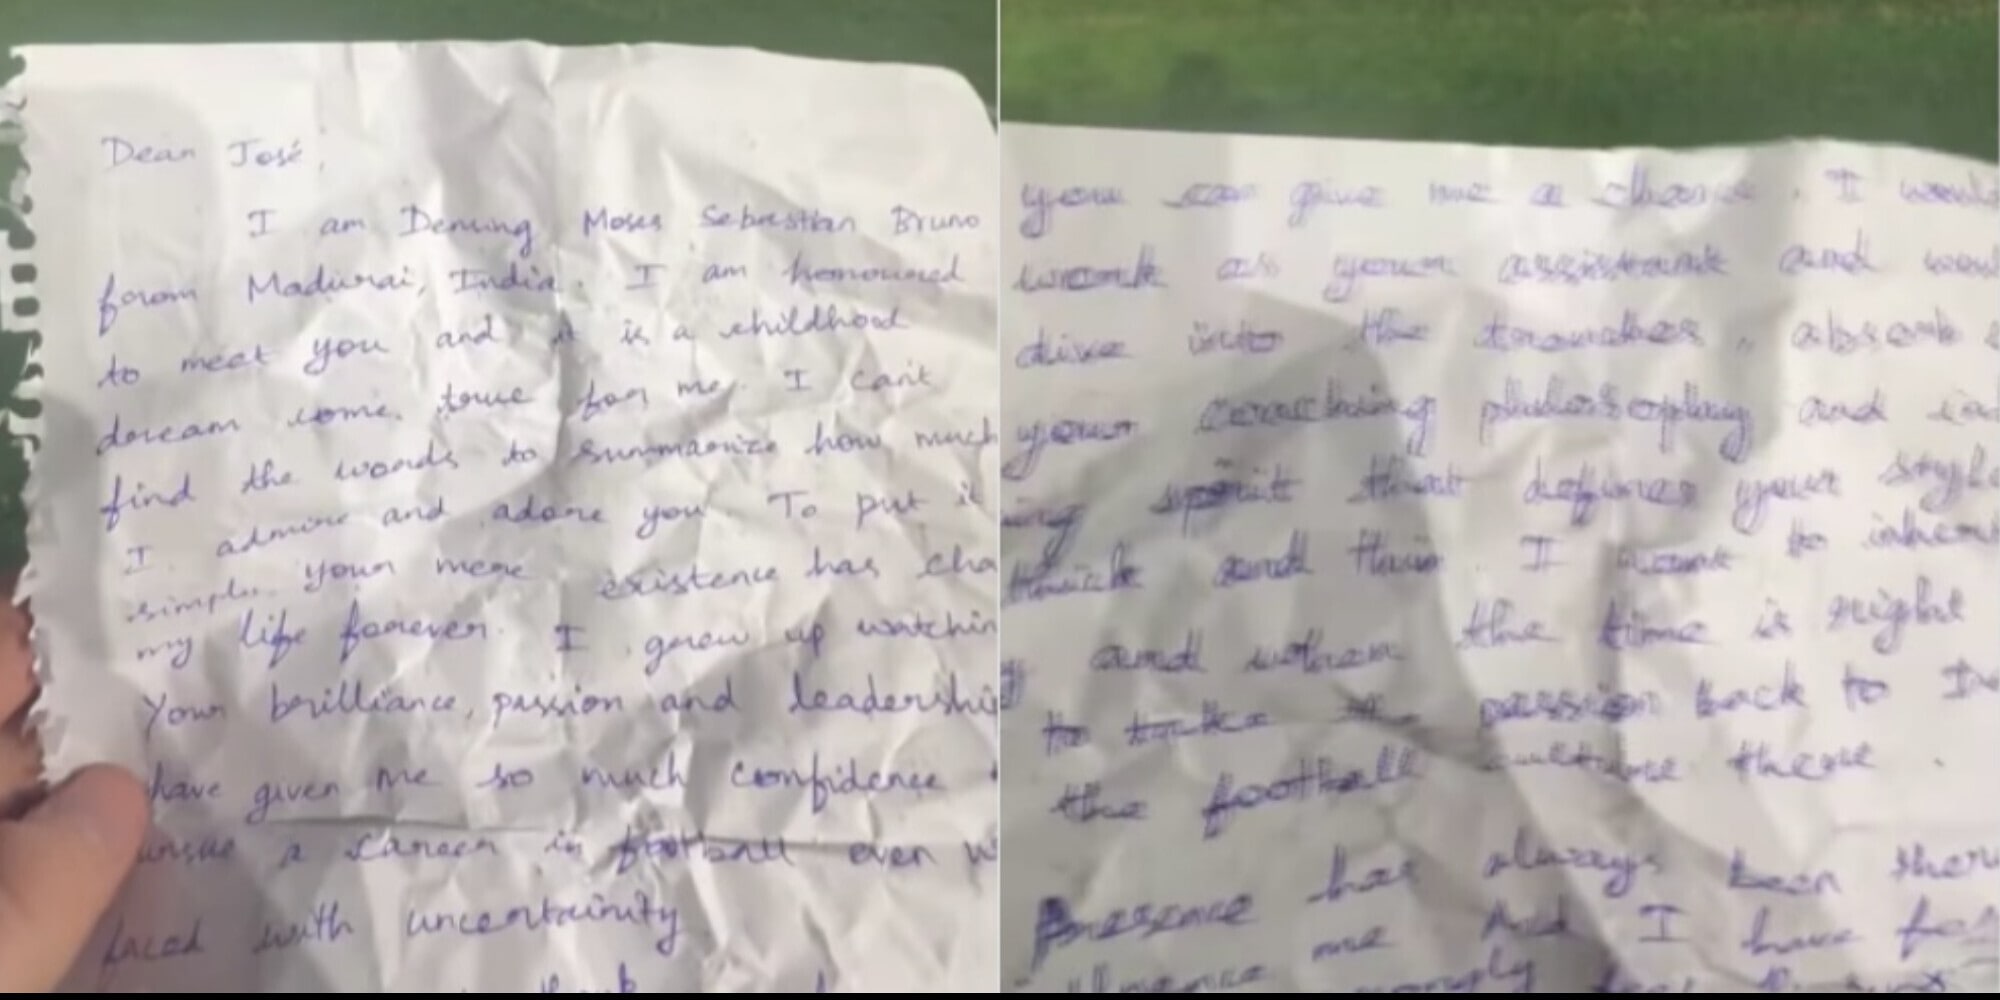 Dear José,
I am Deming Moses Sebastian Bruno
from Madurai, India. I am honoured
to meet you and it is a childhood
dream come true for me. I can't
find the words to summarize how much
I admire and adore you. To put it
simple your mere existence has cha
my life forever. I grew up watchin
Your brilliance, passion and leadershi
have given me so much confidence
ursue a career in football even w
faced with uncertainity
you can give me a chance. I woul
work as your assistant and wou
dive into the trenches, absorb
your coaching philosophy and
ing spirit that defines your style
thick and thin. I want to inheri
y and when the time is right
to take passion back to In
the football culture there.
Presence has always been ther
me And I have